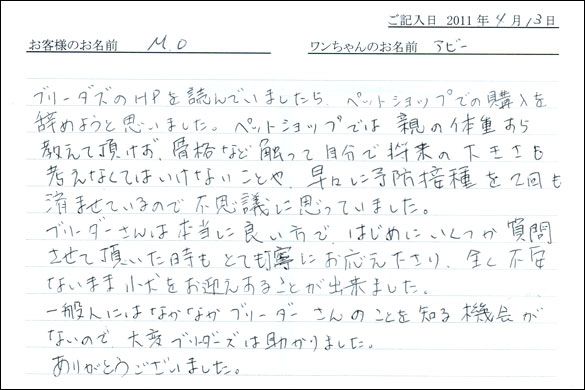 ご記入日 2011年4月13日
お客様のお名前 M.O ワンちゃんのお名前 アビー
ブリーダズのHPを読んでいましたら、ペットショップでの購入を
辞めようと思いました。ペットショップでは親の体重すら
教えて頂けず、骨格など触って自分で将来の大きさも
考えなくてはいけないことや、早々に予防接種を2回も
済ませているので不思議に思っていました。
ブリーダーさんは本当に良い方で、はじめにいくつか質問
させて頂いた時もとても丁寧にお応え下さり、全く不安
ないまま小犬をお迎えすることが出来ました。
一般人にはなかなかブリーダーさんのことを知る機会が
ないので、大変ブリーダーズは助かりました。
ありがとうございました。